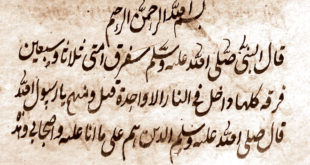 بسم الله الرحمن الرحيم
قال النبي صلى الله عليه وسلم ستفرق امتى ثلاثا وسبعين
فرقه كلها داخل فى النار الا واحدة قيل ومنهم يا رسول الله
قال صلى الله عليه وسلم الذين هم على ما انا عليه واصحابى